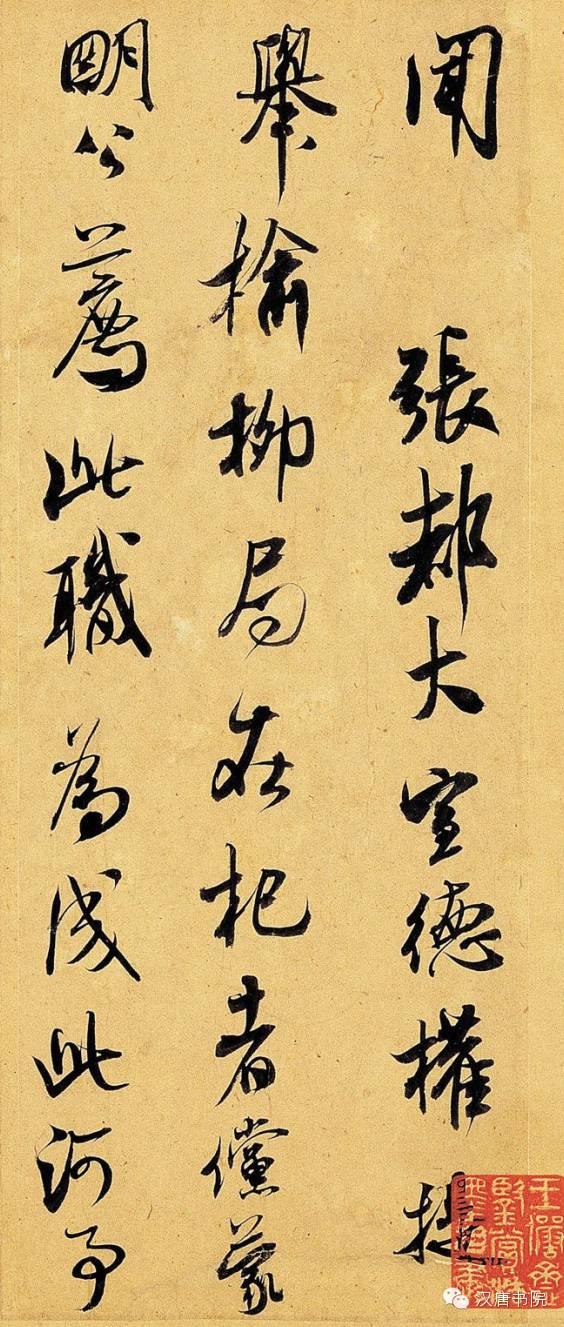 聞 張都大宣德權提
舉榆柳局在杞者儻蒙
明公薦此職為成此河事
汉唐书院